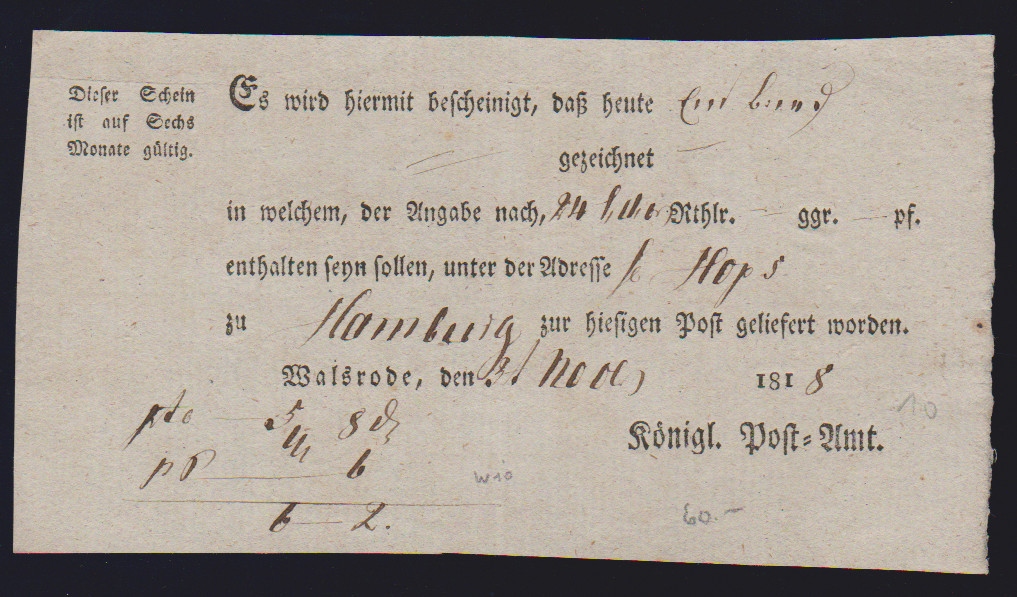 Dieser Schein
ist auf Sechs
Monate gültig.
Es wird hiermit bescheinigt, daß heute Ein
gezeichnet
in welchem, der Angabe nach, 24 Rthlr. — ggr. — pf.
enthalten seyn sollen, unter der Adresse Hops
zu Hamburg zur hiesigen Post geliefert worden.
Walsrode, den 1818
Königl. Post-Amt.
pto — 5 8
6
6 — 2.
W10
10
60.–